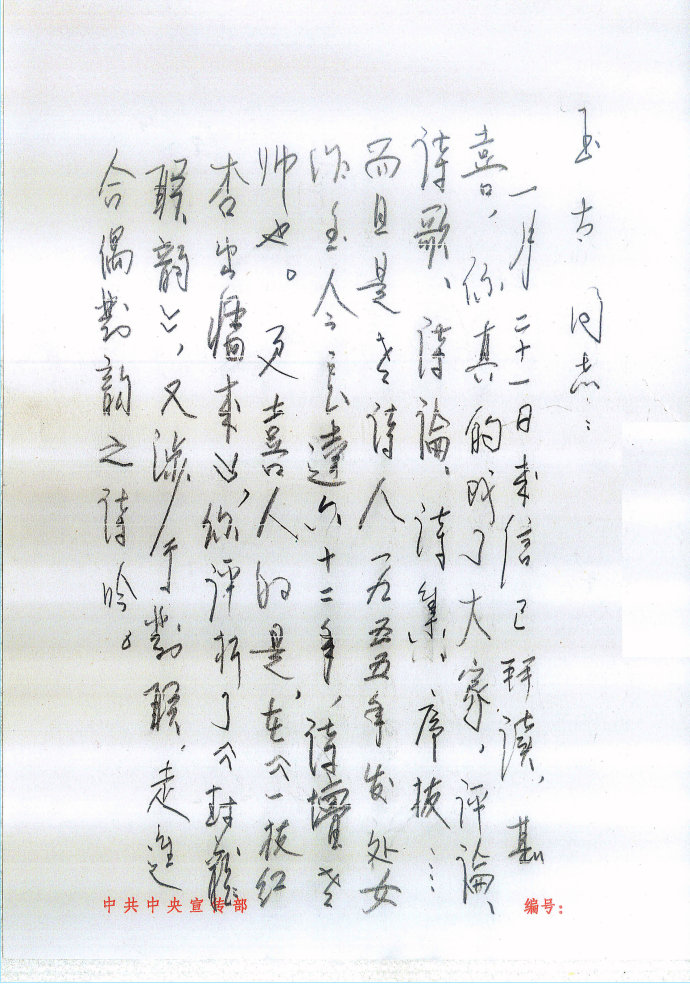 同志：
一月二十一日来信已拜读，甚
喜，你真的成了大家，评論、
诗歌、诗論、诗集、序拔…
而且是老诗人一九五五年发处女
作至今已達六十二年，诗壇老
帅也。更喜人的是，在《一枝红
杏出牆来》，你评析了《封龍
联韵》，又涉于對联，走進
合偶對韵之诗吟。
中共中央宣传部
编号：